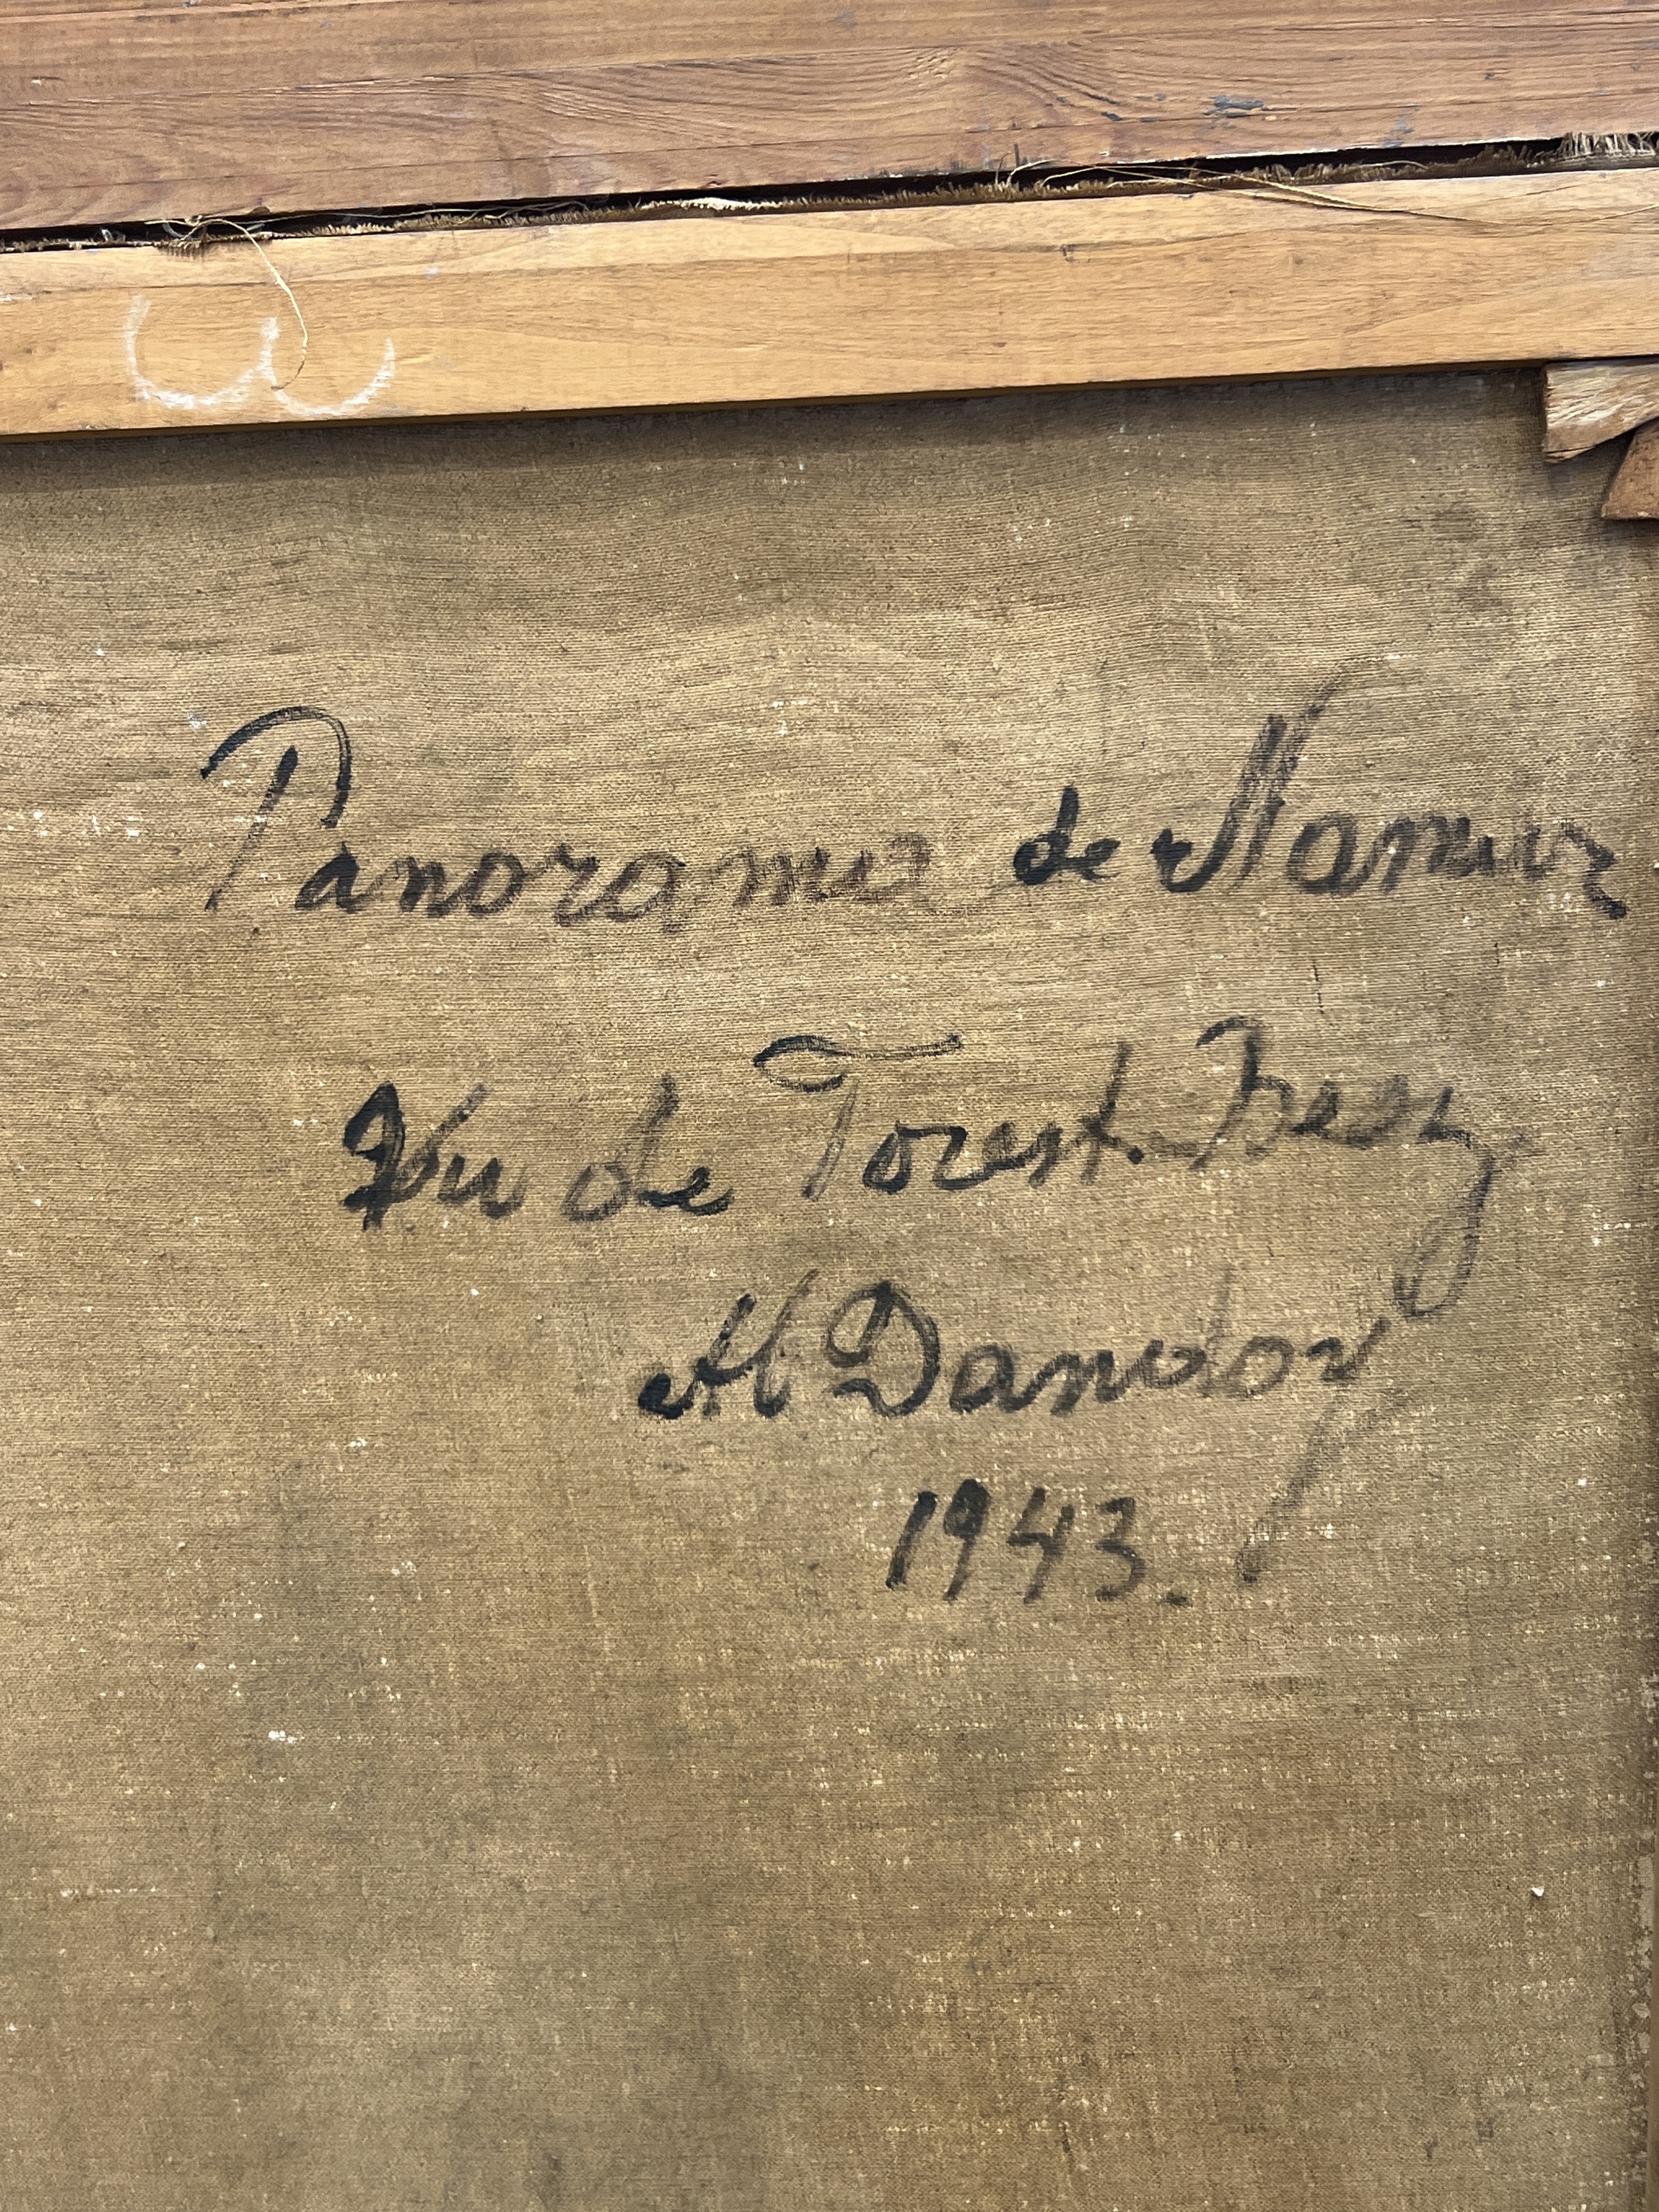 Panorama de Namur
Vu de Forest.
Al Dandoy
1943.